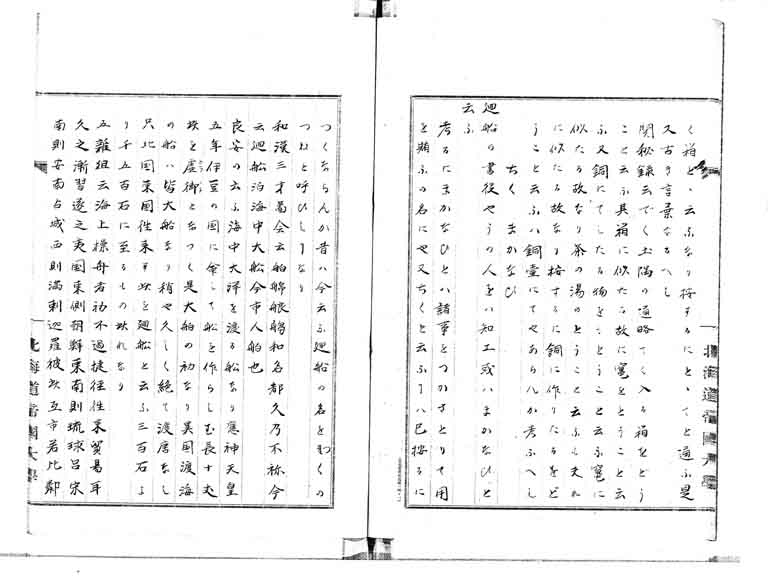 く箱と、云ふなり按するにと、てと通ふ是
又古き言葉なるへし
関秘録云でく土隅の道略てく入る箱をどう
こと云ふ其箱に似たる故に寵をとうこと云
ふ又銅にてしたる物をことうこと云ふ寵に
似たる故なり茶の湯のとうこと云ふも夫れ
に似たる故なり按するに銅に作りたるをど
うこと云ふハ銅壷にてやあらんか考ふへし
ちく まかなひ
廻船の書役やうの人をハ知工或ハまかなひと
云ふ
考るにまかなひとハ諸事をつかさとりて用
を辨ふの名にや又ちくと云ふヿハ已按るに
つくならんか昔ハ今云ふ廻船の名をわくの
つねと呼ひしヿなり
和漢三才葛会云舶 艑艆艒和名都久乃不祢今
云廻船泊海中大舩今市人舶也
良安の云ふ海中大洋を渡る船なり應神天皇
五年伊豆の国に命して船を作らしむ長十丈
枚を虚御となつく是大舶の初なり異国渡海
の船ハ皆大船なり稍や久しく絶て渡唐なし
只北国東国往来す故を廻船と云ふ三百石よ
り千五百石に至るもの故れなり
五雜組云海上操舟者初不過捷徃往来貿易耳
久之漸習遂之夷国東則朝鮮東南則琉球呂宋
南則安南占城西則満剌迦暹羅彼此互市若比鄰
北海道帝国大學
北海道帝国大學